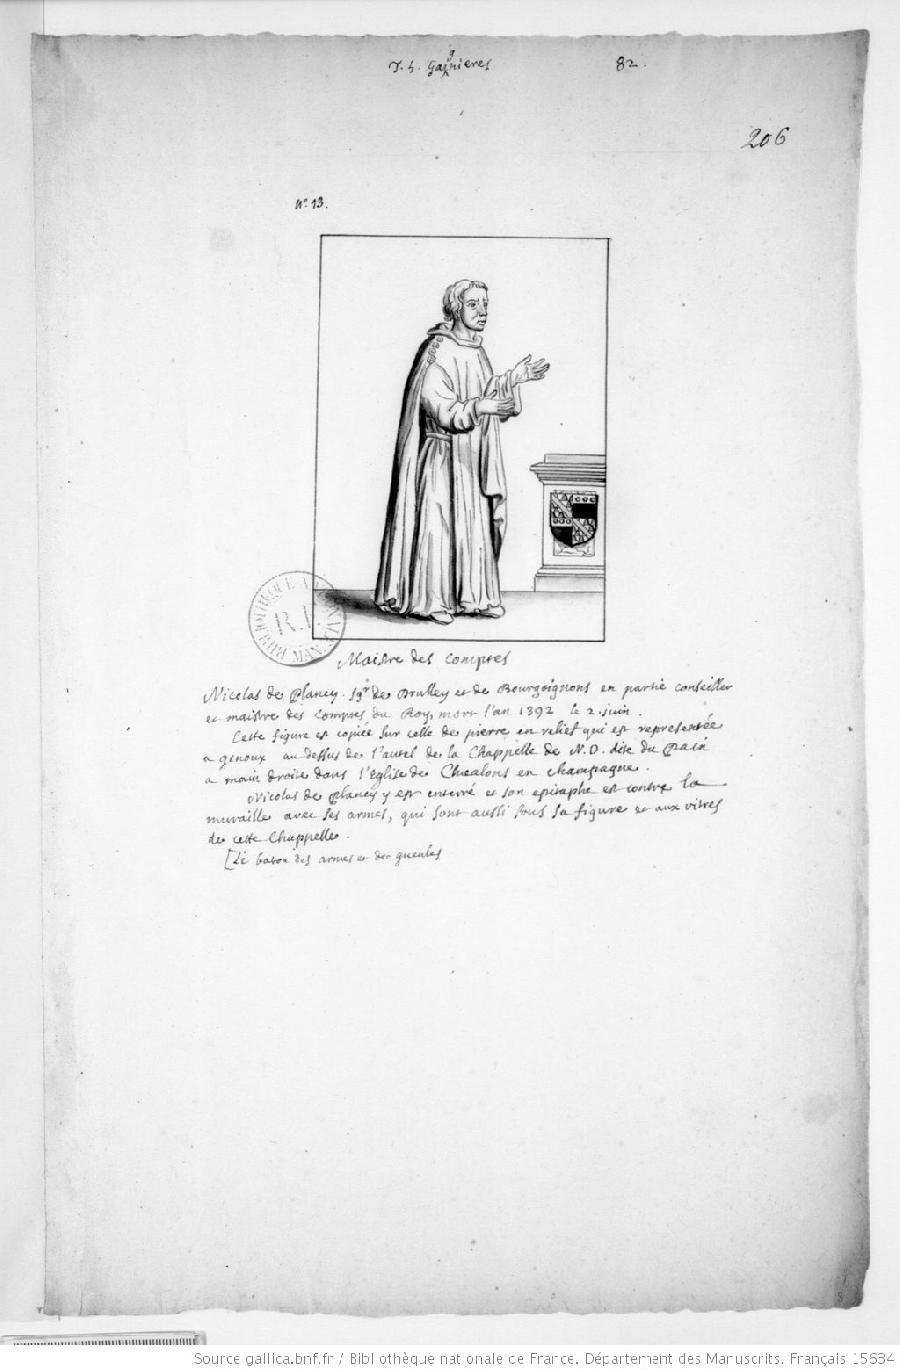 Gaignieres 82.
206
N.° 13.
BIBLIOTHEQUE NATIONALE MAN. R.F.
Maistre des Comptes
Nicolas de Plancy. sgr de Brulley et de Bourgoignons en partie conseiller
et maistre des Comptes du Roy, mort l'an 1392 le 2. juin.
Cette figure est copiée sur celle de pierre en relief qui est representée
a genoux au dessus de l'autel de la Chappelle de N.D. dite du Pain
a main droite dans l'Eglise de Chaalons en champagne.
Nicolas de Plancy y est enterré et son epitaphe est contre la
muraille avec ses armes, qui sont aussi sous sa figure et aux vitres
de cette Chappelle.
[Le baton des armes est de gueules
Source gallica.bnf.fr / Bibliothèque nationale de France. Département des Manuscrits. Français 15634